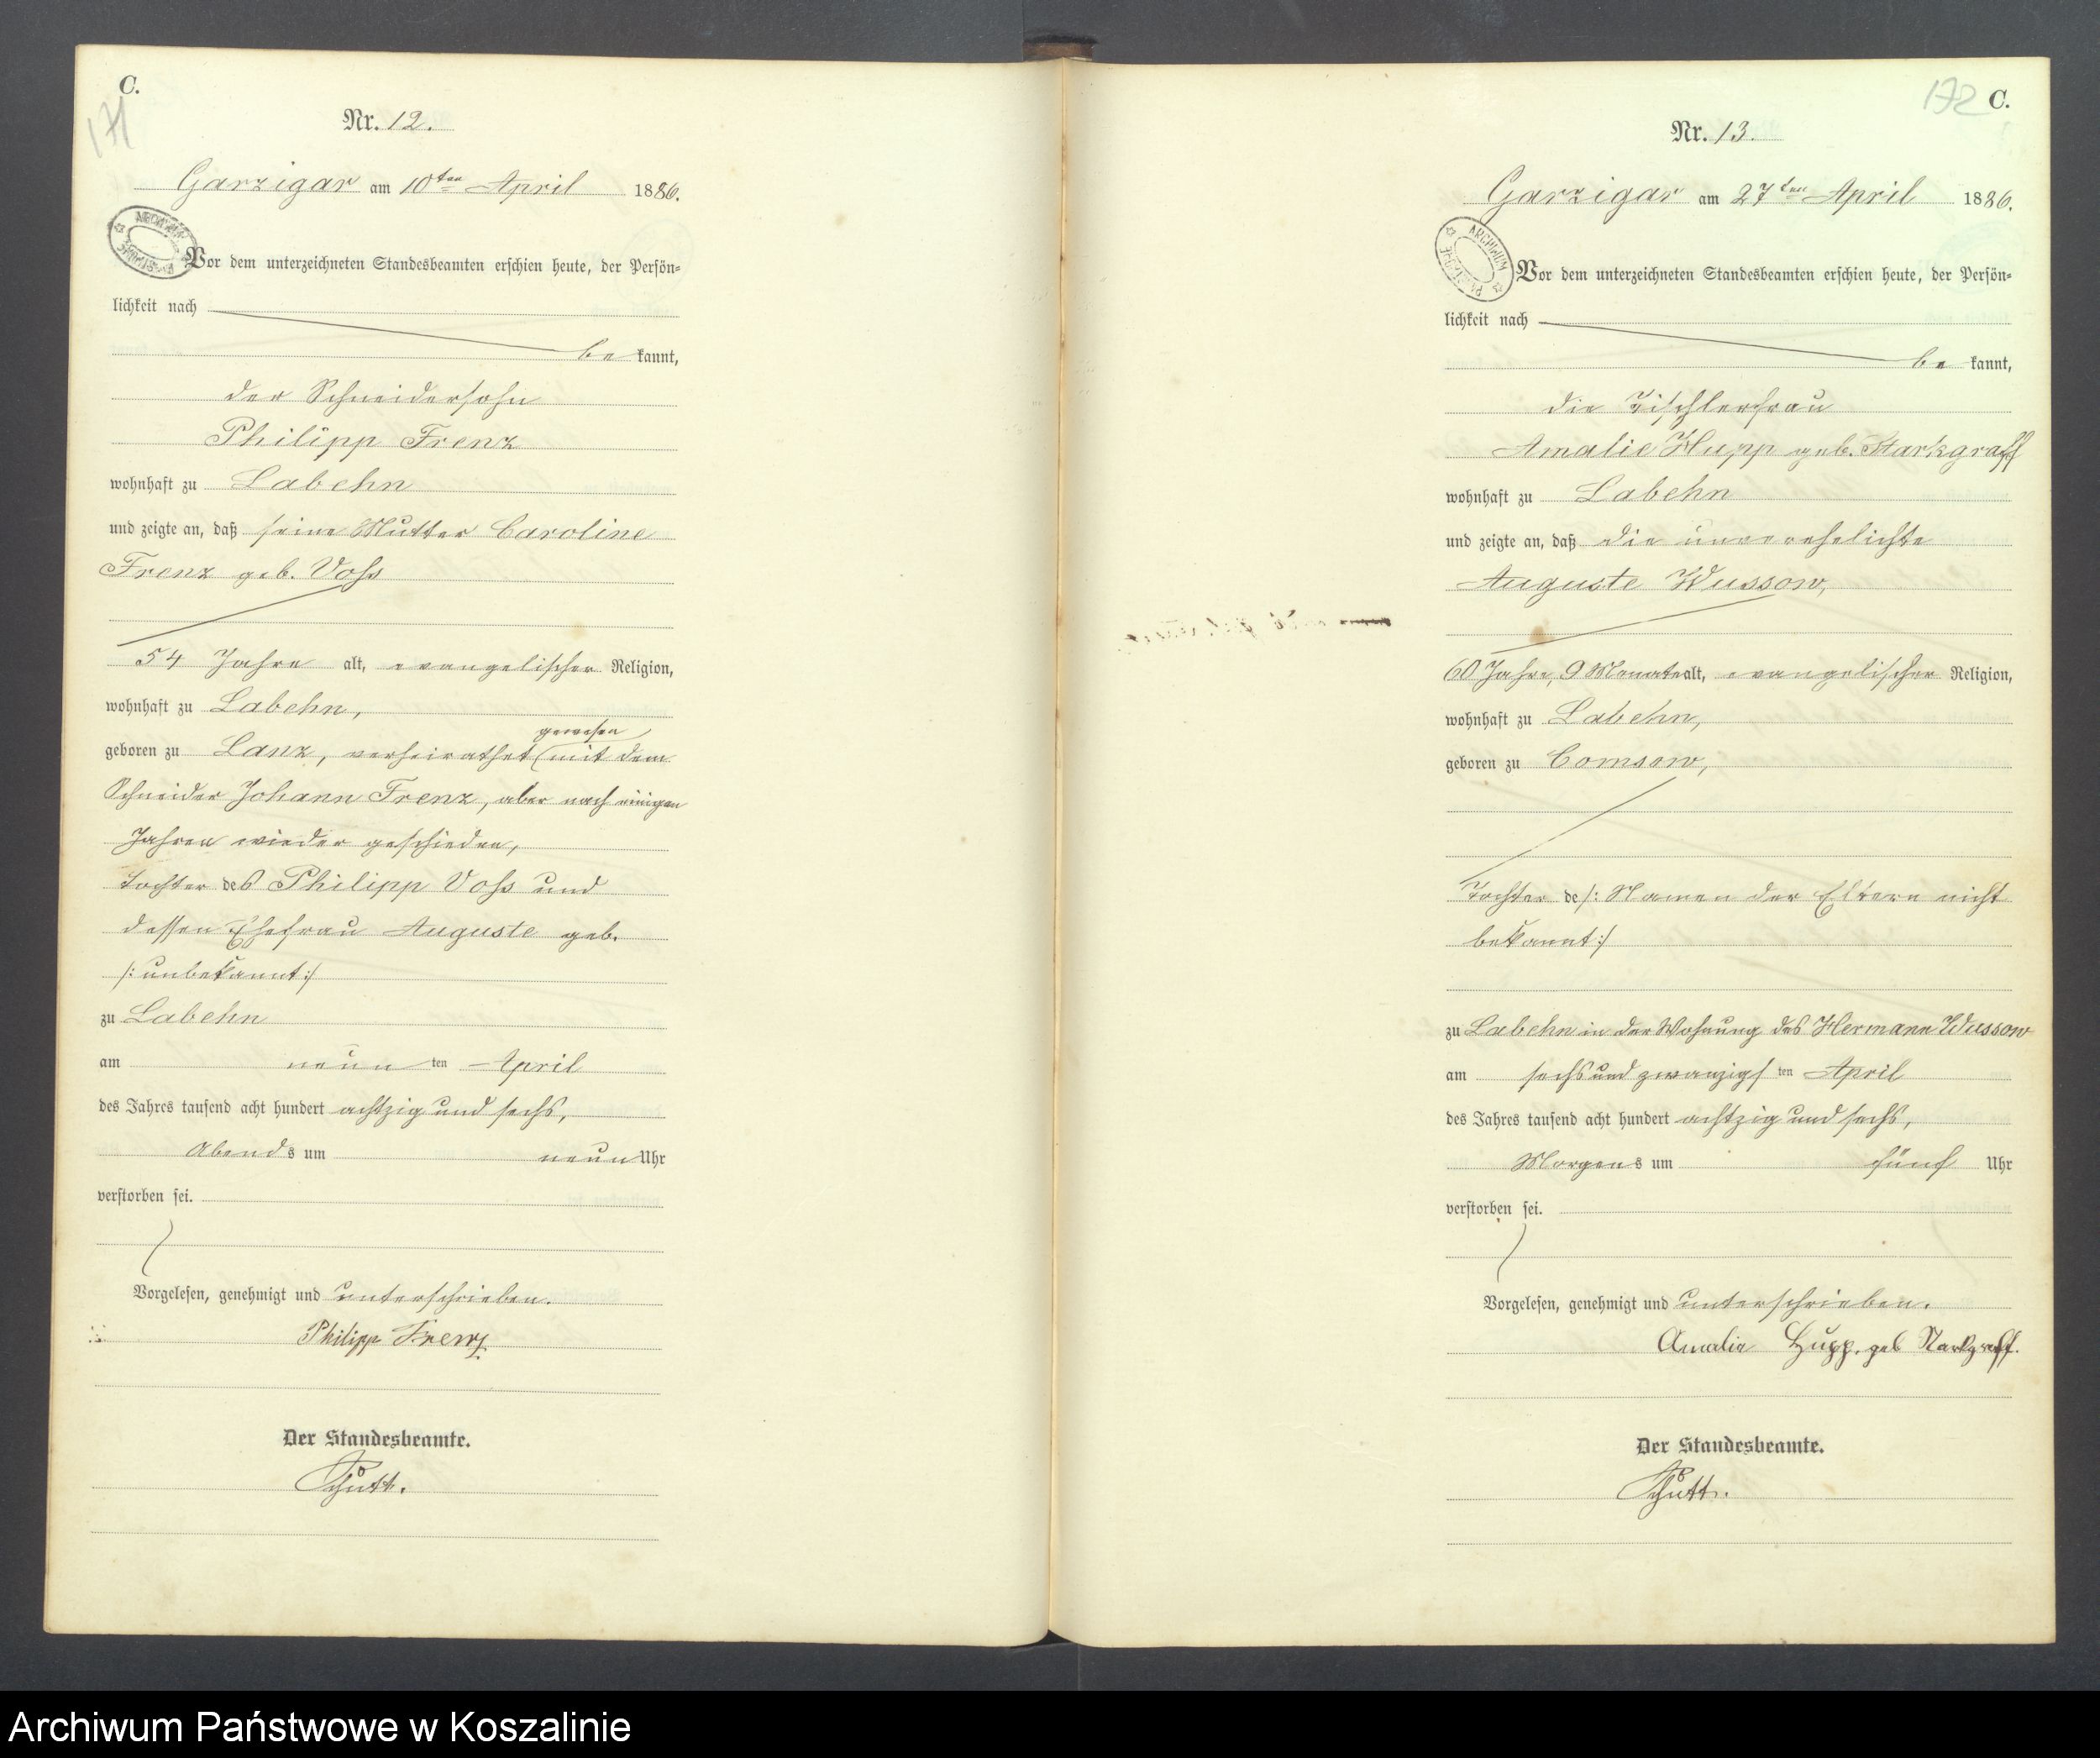 C.
171
Nr. 12.
Garzigar am 10ten April 1886.
ARCHIWUM
Vor dem unterzeichneten Standesbeamten erschien heute, der Persön-
lichkeit nach
be kannt,
der Schneidersohn
Philipp Frenz
wohnhaft zu Labehn
und zeigte an, daß seine Mutter Caroline
Frenz geb. Voß
54 Jahre alt, evangelischer Religion,
wohnhaft zu Labehn,
gewesen
geboren zu Lanz, verheirathet (mit dem
Schneider Johann Frenz, aber nach einigen
Jahren wieder geschieden,
Tochter des Philipp Voß und
dessen Ehefrau Auguste geb.
/: unbekannt :/
zu Labehn
am neun ten April
des Jahres tausend acht hundert achtzig und sechs,
Abends um neun Uhr
verstorben sei.
Vorgelesen, genehmigt und unterschrieben.
Philipp Frenz
Der Standesbeamte.
Schütt.
172 C.
Nr. 13.
Garzigar am 27ten April 1886.
ARCHIWUM
Vor dem unterzeichneten Standesbeamten erschien heute, der Persön-
lichkeit nach
be kannt,
die Tischlerfrau
Amalie Hupp geb. Markgraff
wohnhaft zu Labehn
und zeigte an, daß die unverehelichte
Auguste Wussow,
60 Jahre, 9 Monate alt, evangelischer Religion,
wohnhaft zu Labehn,
geboren zu Comsow,
Tochter de /: Namen der Eltern nicht
bekannt :/
zu Labehn in der Wohnung des Hermann Wussow
am sechs und zwanzigs ten April
des Jahres tausend acht hundert achtzig und sechs,
Morgens um fünf Uhr
verstorben sei.
Vorgelesen, genehmigt und unterschrieben.
Amalie Hupp. geb Markgraff.
Der Standesbeamte.
Schütt.
Archiwum Państwowe w Koszalinie